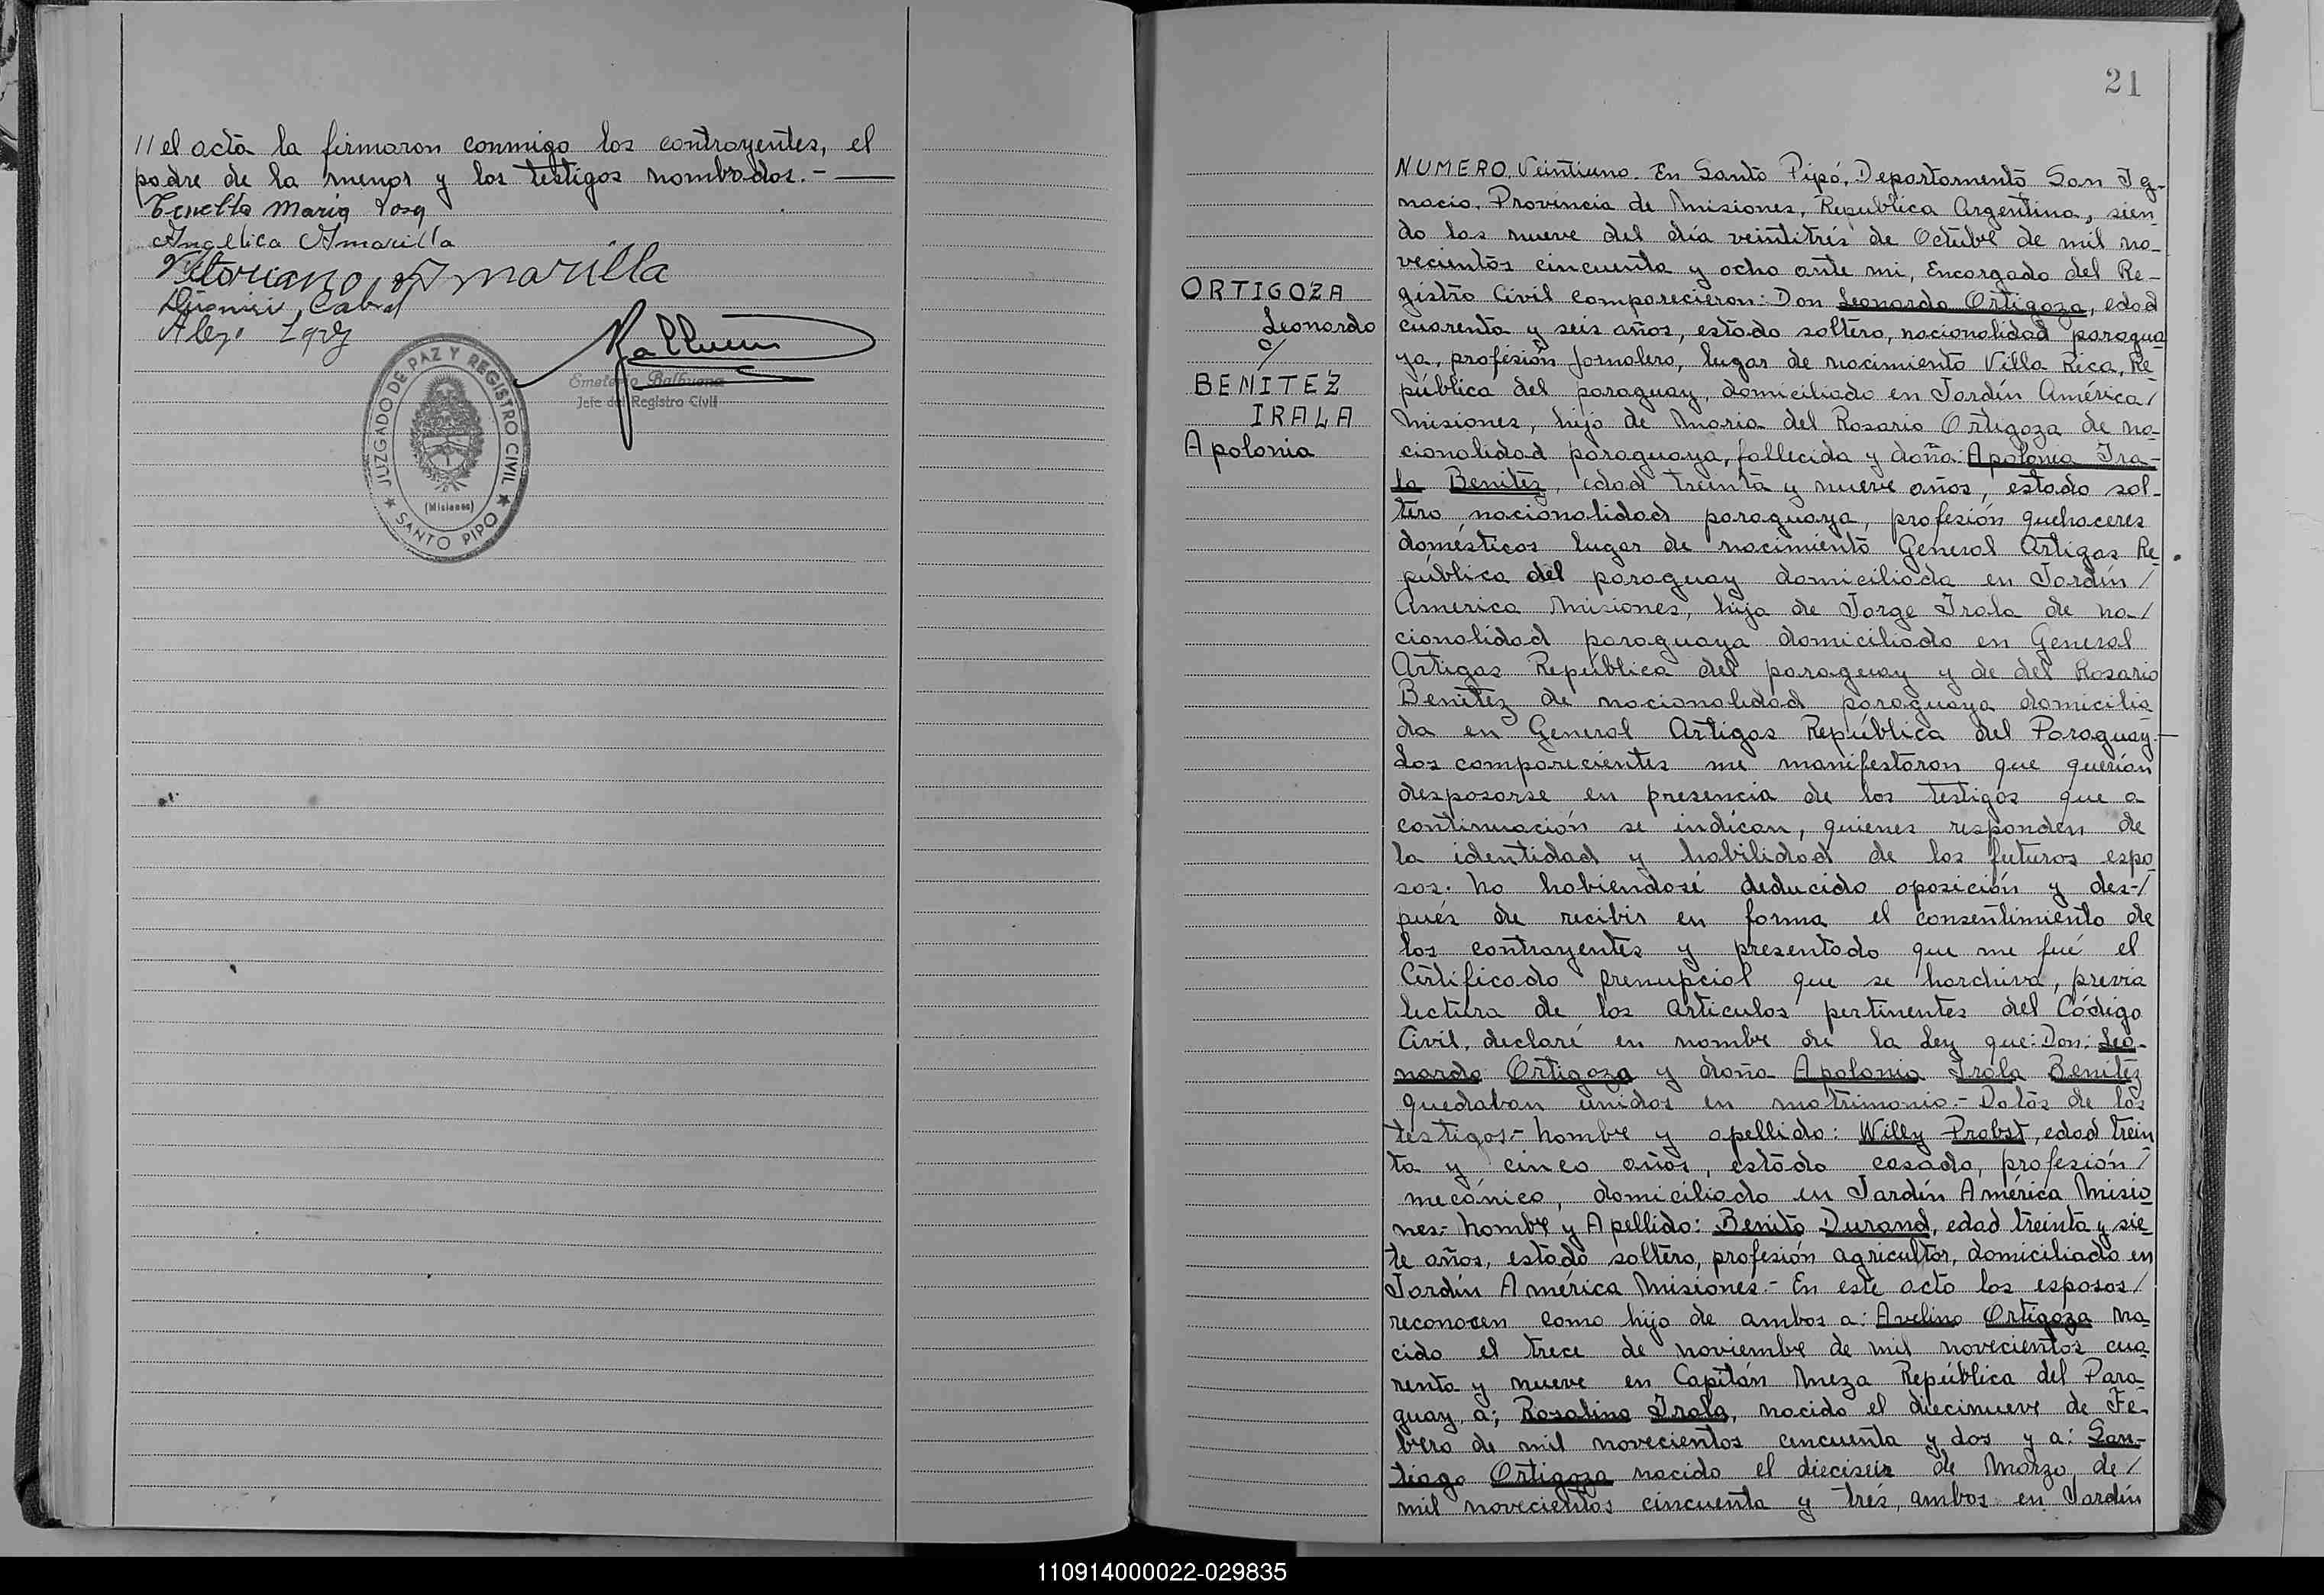 // el acta la firmaron conmigo los contrayentes, el
padre de la menor y los testigos nombrados.-
Maria Rosa
Angelica Amarilla
Vitoriano Amarilla
Cabral
JUZGADO DE PAZ Y REGISTRO CIVIL
(Misiones)
★ SANTO PIPO ★
Emeterio Balbuena
Jefe del Registro Civil
21
ORTIGOZA
Leonardo
c/
BENITEZ
IRALA
Apolonia
NUMERO Veintiuno. En Santo Pipó, Departamento San Ig-
nacio, Provincia de Misiones, República Argentina, sien
do las nueve del día veintitrés de Octubre de mil no-
vecientos cincuenta y ocho ante mi, Encargado del Re-
gistro Civil comparecieron: Don Leonardo Ortigoza, edad
cuarenta y seis años, estado soltero, nacionalidad paragua
ya, profesión jornalero, lugar de nacimiento Villa Rica, Re-
pública del paraguay, domiciliado en Jardín América/
Misiones, hijo de Maria del Rosario Ortigoza de na-
cionalidad paraguaya, fallecida y doña: Apolonia Ira-
la Benitez, edad treinta y nueve años, estado sol-
tero, nacionalidad paraguaya, profesión quehaceres
domésticos lugar de nacimiento General Artigas Re
pública del paraguay domiciliada en Jardín /
America Misiones, hija de Jorge Irala de na-/
cionalidad paraguaya domiciliado en General
Artigas República del paraguay y de del Rosario
Benitez de nacionalidad paraguaya domicilia
da en General Artigas República del Paraguay.-
Los comparecientes me manifestaron que querían
desposarse en presencia de los testigos que a
continuación se indican, quienes responden de
la identidad y habilidad de los futuros espo
sos. No habiendose deducido oposición y des-/
pués de recibir en forma el consentimiento de
los contrayentes y presentado que me fué el
Certificado prenupcial que se harchiva, previa
lectura de los articulos pertinentes del Código
Civil, declaré en nombre de la Ley que: Don: Leo-
nardo Ortigoza y doña Apolonia Irala Benitez
quedaban unidos en matrimonio.- Datos de los
testigos.- Nombre y apellido: Willy Probst, edad trein
ta y cinco años, estado casado, profesión /
mecánico, domiciliado en Jardín América Misio
nes.- Nombre y Apellido: Benito Durand, edad treinta y sie
te años, estado soltero, profesión agricultor, domiciliado en
Jardín América Misiones.- En este acto los esposos /
reconocen como hijo de ambos a: Avelino Ortigoza na
cido el trece de noviembre de mil novecientos cua
renta y nueve en Capitán Meza República del Para-
guay, a; Rosalino Irala, nacido el diecinueve de Fe-
brero de mil novecientos cincuenta y dos y a: San-
tiago Ortigoza nacido el dieciseis de Marzo de /
mil novecientos cincuenta y tres, ambos en Jardín
110914000022-029835